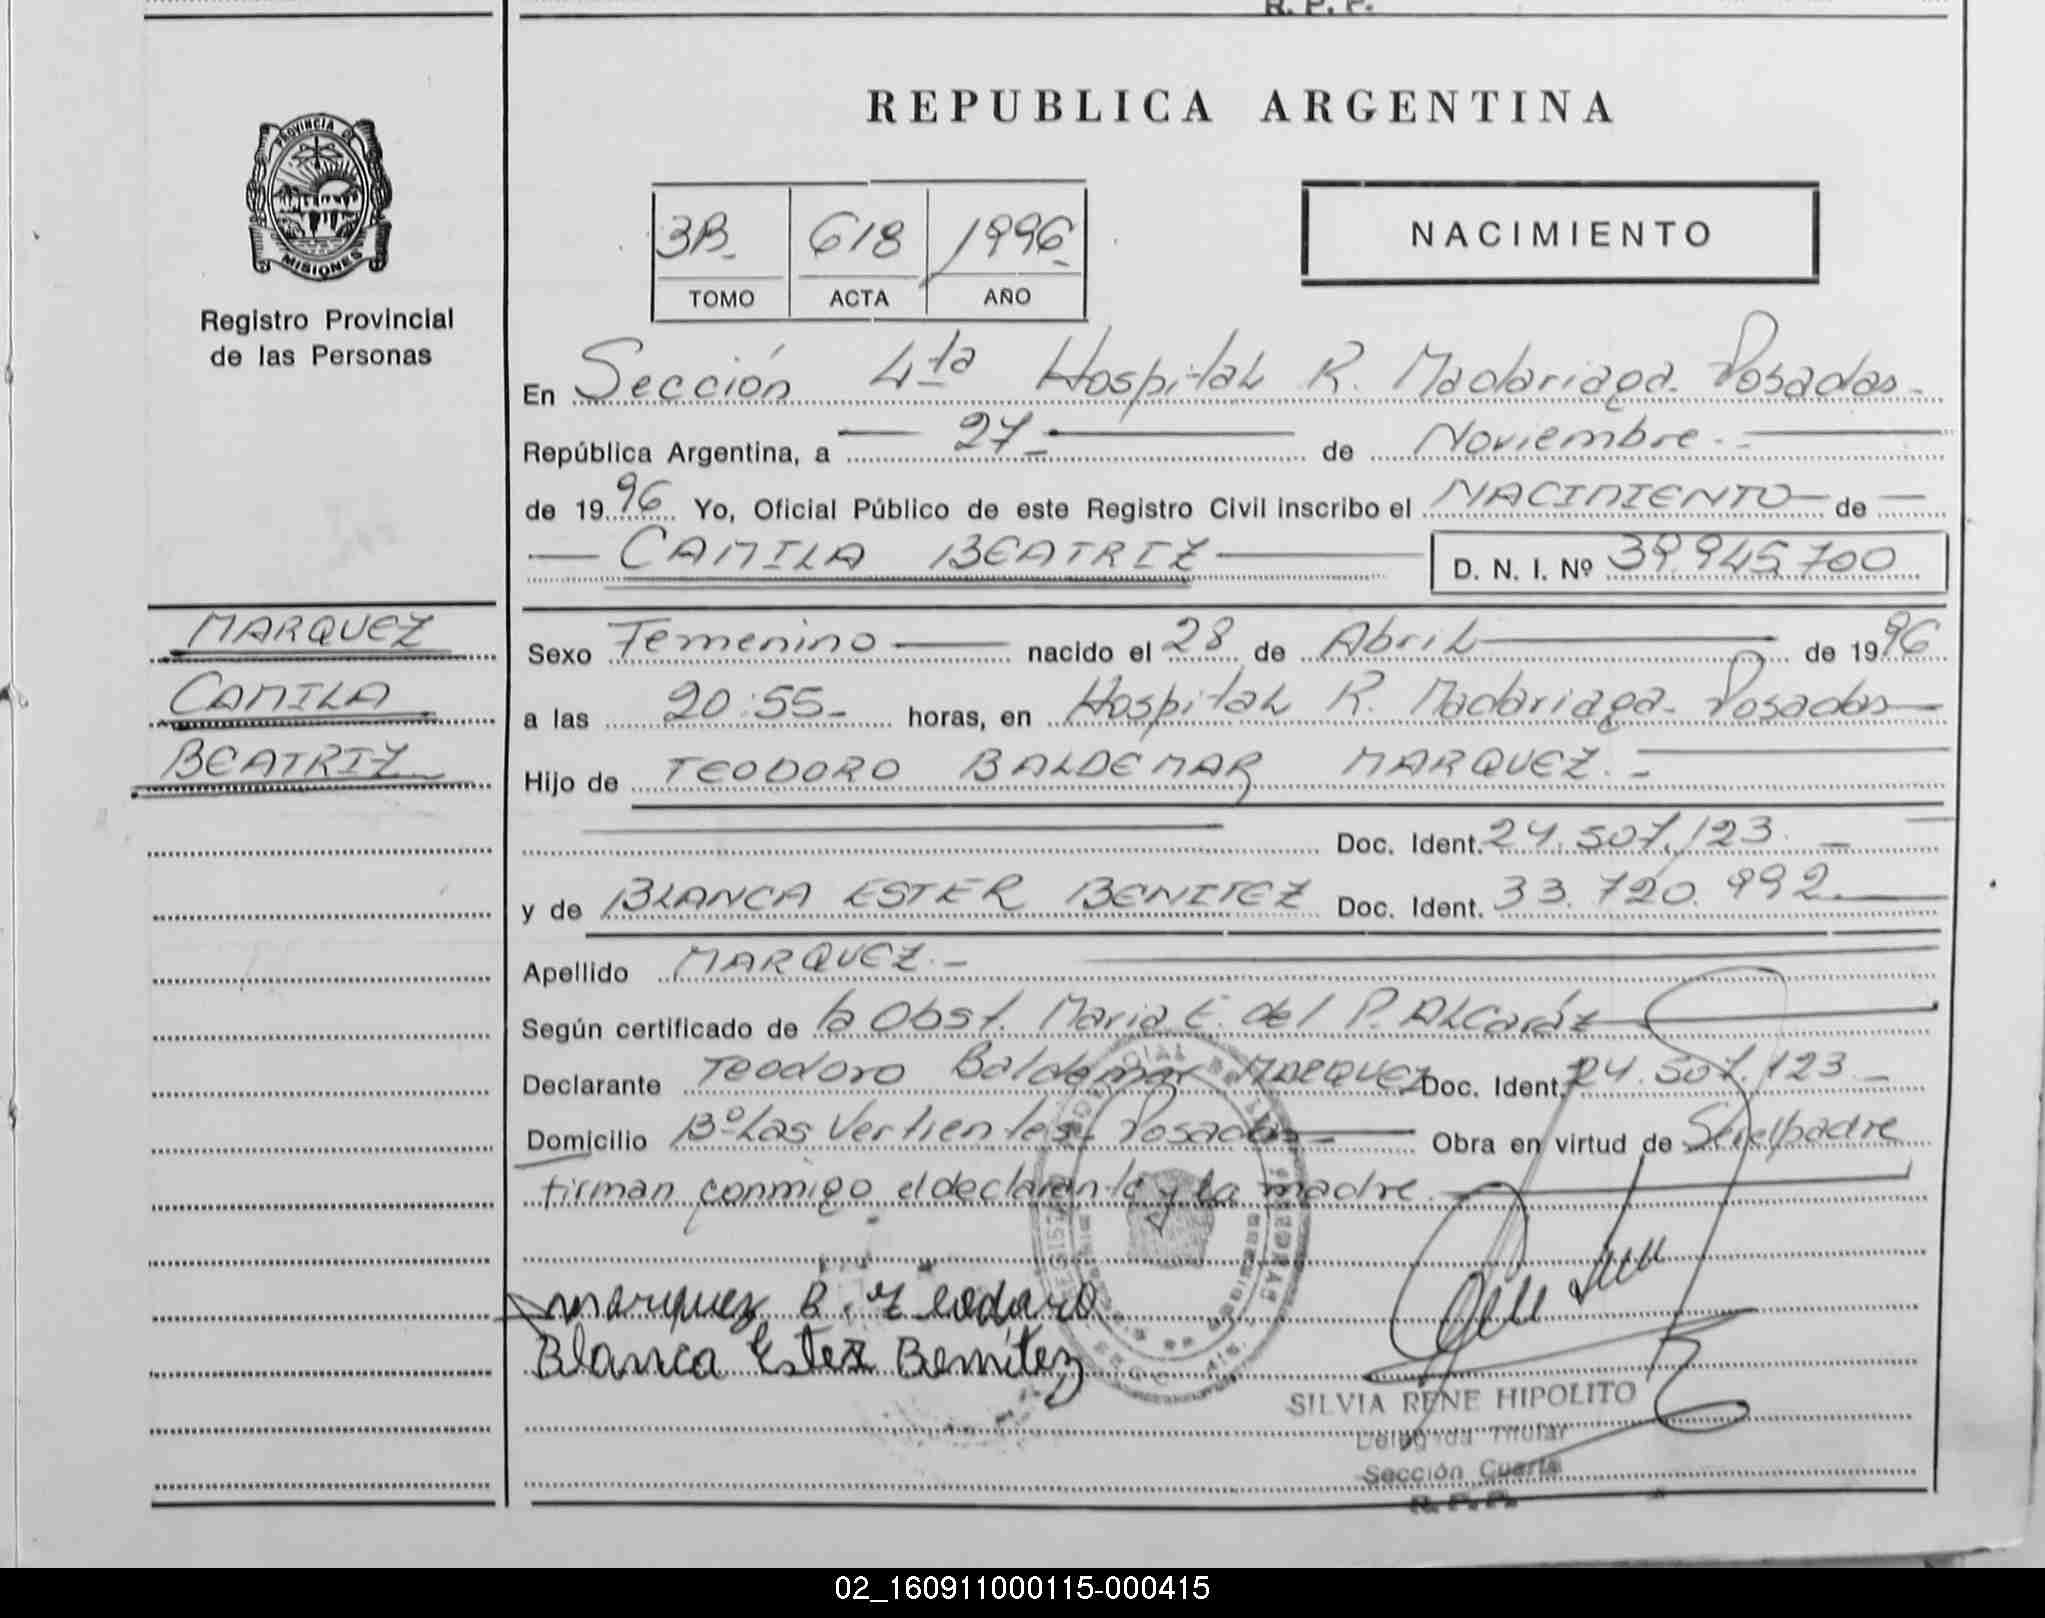 R. P. P.
REPUBLICA ARGENTINA
PROVINCIA DE
MISIONES
Registro Provincial
de las Personas
3B. 618 1996
TOMO ACTA AÑO
NACIMIENTO
En Sección 4ta Hospital R. Madariaga. Posadas.
República Argentina, a 27 de Noviembre.
de 1996 Yo, Oficial Público de este Registro Civil inscribo el NACIMIENTO de
CAMILA BEATRIZ D. N. I. Nº 39.945.700
MARQUEZ
CAMILA
BEATRIZ
Sexo Femenino nacido el 28 de Abril de 1996
a las 20:55 horas, en Hospital R. Madariaga. Posadas
Hijo de TEODORO BALDEMAR MARQUEZ.
Doc. Ident. 24.507.123.
y de BLANCA ESTER BENITEZ Doc. Ident. 33.720.992.
Apellido MARQUEZ.
Según certificado de la Obst. Maria E. del P. ALCaráz
Declarante Teodoro Baldemar MARQUEZ Doc. Ident. 24.507.123
Domicilio Bº Las Vertientes. Posadas Obra en virtud de Ser el padre
firman conmigo el declarante y la madre.
Marquez B. Teodoro
Blanca Ester Benítez
SILVIA RENE HIPOLITO
Delegada Titular
Sección Cuarta
R. P. P.
02_160911000115-000415